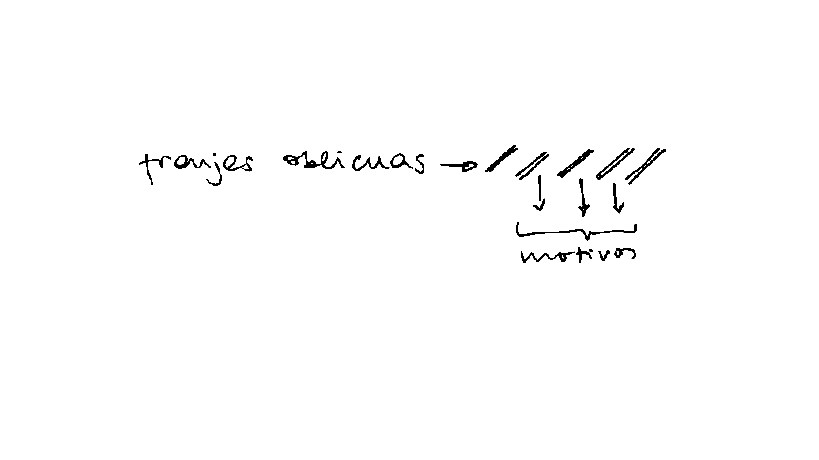 franjes oblicuas
motivos